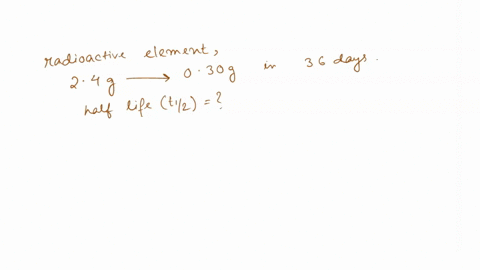 radioactive element,
2.4 g ⟶ 0.30 g in 36 days.
half life (t1/2) = ?